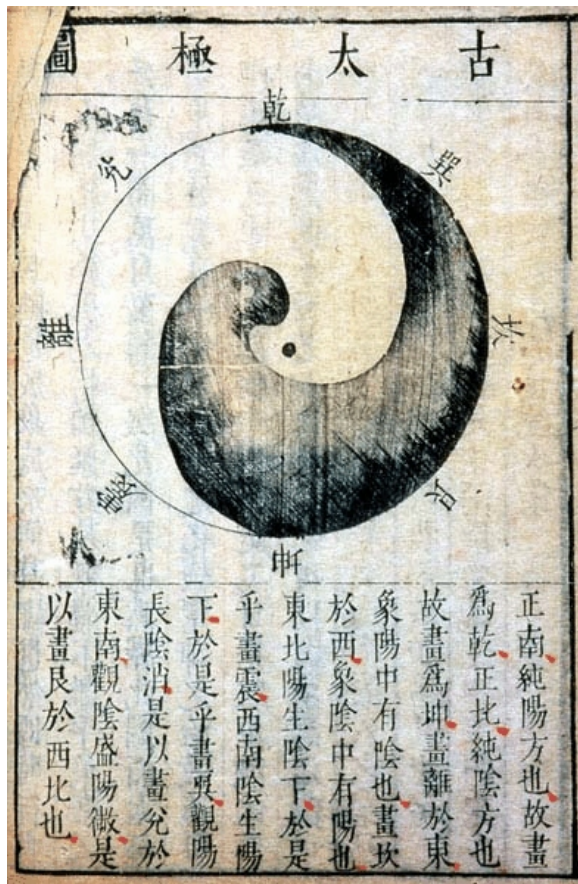 古太極圖
乾
兌
巽
離
坎
震
艮
坤
正南純陽方也故畫
爲乾正比純陰方也
故畫爲坤畫離於東
象陽中有陰也畫坎
於西象陰中有陽也
東北陽生陰下於是
乎畫震西南陰生陽
下於是乎畫巽觀陽
長陰消是以畫兌於
東南觀陰盛陽微是
以畫艮於西比也